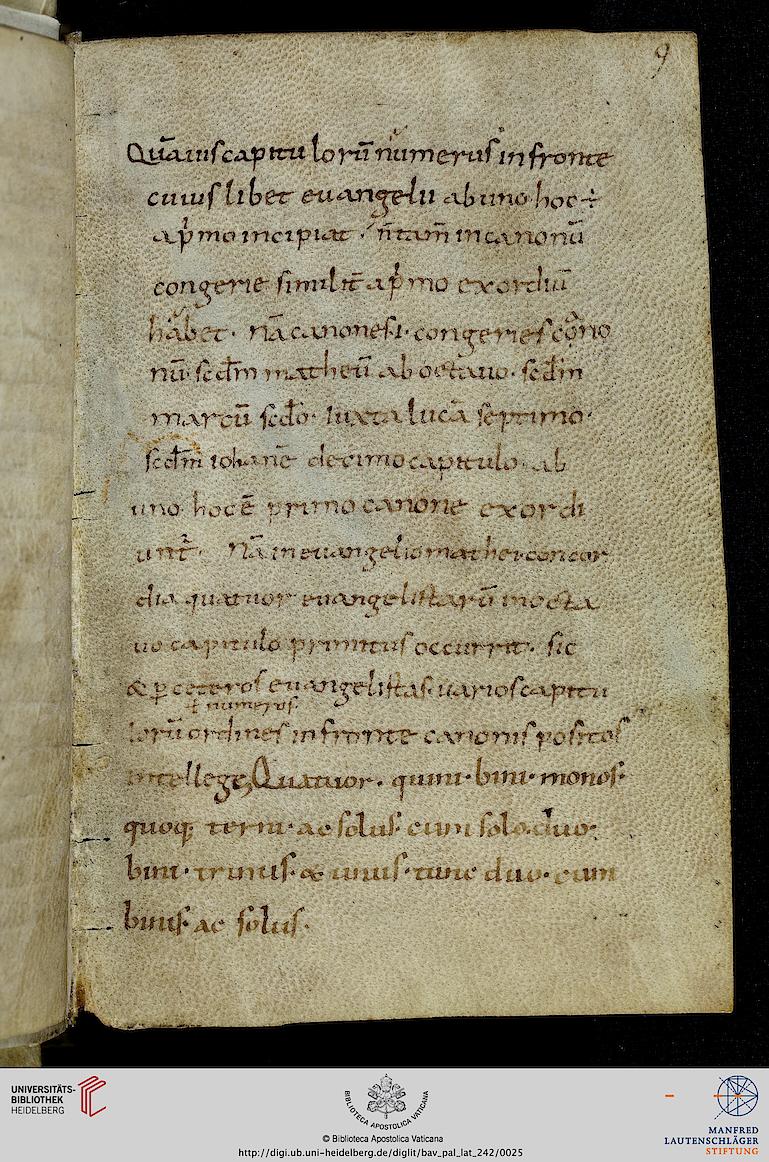 9
Quāuis capitulorū numerus in fronte
cuius libet euangelii ab uno hoc ÷
a p̄mo incipiat · n̄ tam̄ in canonū
congerie similit̄ a p̄mo exordiū
habet · nā canones · i · congeries
nū · scd̄m matheū ab octauo · scd̄m
marcū scd̄o · iuxta lucā septimo ·
scd̄m iohanē decimo capitulo · ab
uno hoc ē primo canone exordi
unt̄ · Nā in euangelio mathei concor
dia quatuor euangelistarū in octa
uo capitulo primitus occurrit · sic
& p̱ ceteros euangelistas · uarios capitu
ł numeros ·
lorū ordines in fronte canonis positos
intellege, Quatuor · quini · bini · monos ·
quoq; terni · ac solus · cum solo · duo ·
bini · trinus · & unus · tunc duo · cum
binis · ac solus ·
UNIVERSITÄTS-
BIBLIOTHEK
HEIDELBERG
BIBLIOTECA APOSTOLICA VATICANA
© Biblioteca Apostolica Vaticana
http://digi.ub.uni-heidelberg.de/diglit/bav_pal_lat_242/0025
MANFRED
LAUTENSCHLÄGER
STIFTUNG